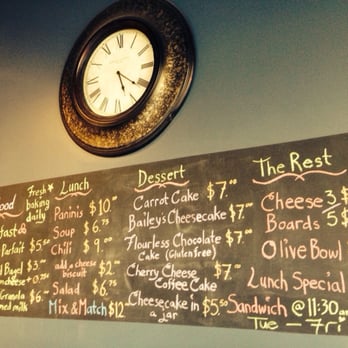 ood
stfast &
Parfait $5.50
d Bagel $3.
cheese +0.75
Granola $6.
ned milk
Fresh*
baking
daily
Lunch
Paninis $10.00
Soup $6.75
Chili $9.00
add a cheese
biscuit $2.00
Salad $6.75
Mix & Match $12
Dessert
Carrot Cake $7.00
Bailey's Cheesecake $7.00
Flourless Chocolate
Cake (Gluten free) $7.00
Cherry Cheese
Coffee Cake $7.00
Cheesecake in
a jar $5.50
The Rest
Cheese 3 $
Boards 5 $
Olive Bowl
Lunch Special
Sandwich @ 11:30am
Tue - Fri